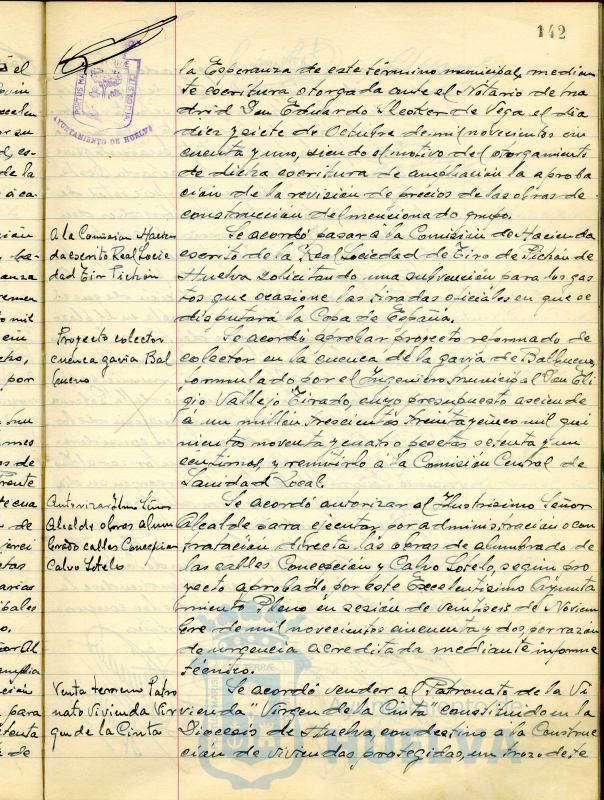 142
PORTUS MARIS ET TERRÆ CUSTODIA
AYUNTAMIENTO DE HUELVA
la Esperanza de este término municipal, median
te escritura otorgada ante el Notario de Ma
drid Don Eduardo de Vega el dia
diez y siete de Octubre de mil novecientos cin
cuenta y uno, siendo el motivo del otorgamiento
de dicha escritura de ampliación la aproba
ción de la revisión de precios de las obras de
construcción del mencionado grupo.
A la Comision Hacien
da escrito Real Socie
dad Tiro Pichón
Se acordó pasar á la Comisión de Hacienda
escrito de la Real Sociedad de Tiro de Pichón de
Huelva solicitando una subvención para los gas
tos que ocasione las tiradas oficiales en que se
disputará la Copa de España.
Proyecto colector
cuenca gavia Bal
bueno
Se acordó aprobar proyecto reformado de
colector en la cuenca de la gavia de Balbueno,
formulado por el Ingeniero municipal Don Eli
gio Vallejo Tirado, cuyo presupuesto asciende
á un millón trescientos treinta y cinco mil qui
nientos noventa y cuatro pesetas setenta y un
céntimos, y remitirlo á la Comisión Central de
Sanidad Local.
Autorizar Ilmo Señor
Alcalde obras alum
brado calles Concepcion
Calvo Sotelo
Se acordó autorizar al Ilustrisimo Señor
Alcalde para ejecutar por administración o con
tratación directa las obras de alumbrado de
las calles Concepción y Calvo Sotelo, según pro
yecto aprobado por este Excelentísimo Ayunta
miento Pleno en sesión de veintiseis de Noviem
bre de mil novecientos cincuenta y dos por razón
de urgencia acreditada mediante informe
técnico.
Venta terreno Patro
nato Vivienda Vir
gen de la Cinta
Se acordó vender al Patronato de la Vi
vienda "Virgen de la Cinta" constituido en la
Diócesis de Huelva, con destino a la Construc
ción de viviendas protegidas, un trozo de te